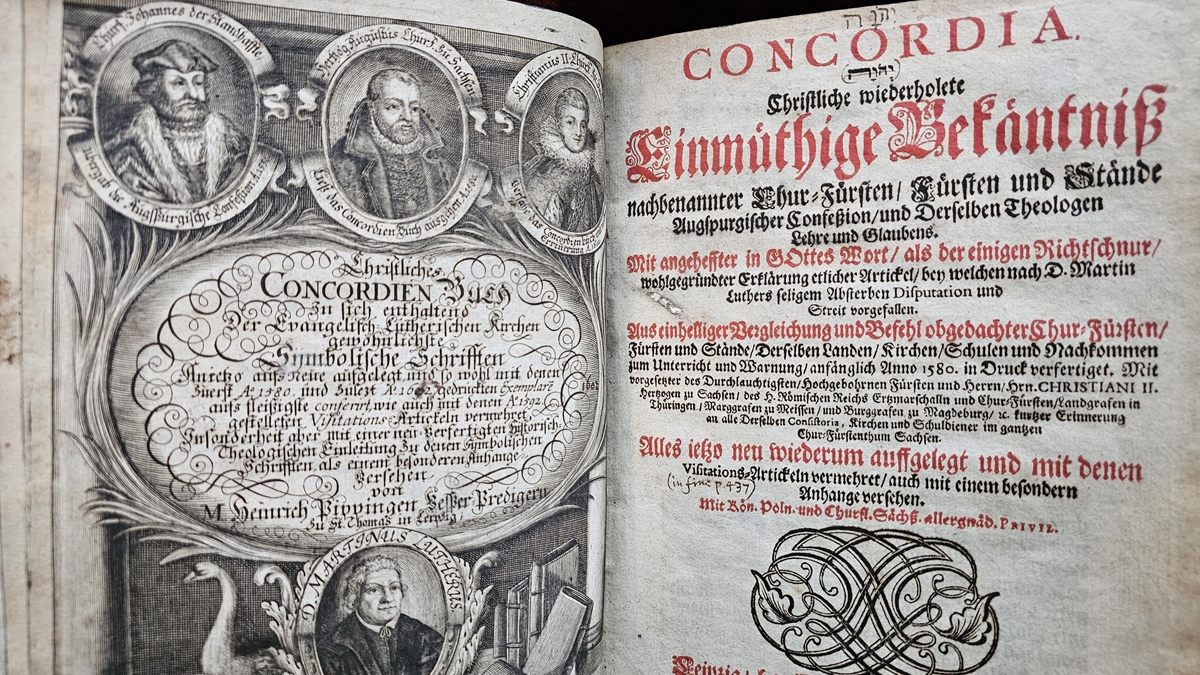 Churf. Johannes der Standhafte.
übergab die Augspurgische Confession A. 1530.
Hertzog Augustus Churf. zu Sachsen
ließ das Concordien Buch ausgehen A. 1580.
Christianus II. Churf.
das Concordien buch
Erinnerung
Christliches
CONCORDIEN Buch
In sich enthaltend
Der Evangelisch-Lutherischen Kirchen
gewöhnlichste
Symbolische Schrifften
Anietzo aufs Neue aufgelegt, und so wohl mit denen
Zuerst Aº 1580. und Zulezt Aº gedruckten Exemplarē
aufs fleißigste conferirt, wie auch mit denen Aº 1592.
gestelleten Visitations Articteln vermehret,
Insonderheit aber mit einer neu-verfertigten historisch-
Theologischen Einleitung Zu denen Symbolischen
Schrifften, als einem besonderen Anhange
Versehen
von
M. Heinrich Pippingen Vesper Predigern
Zu St. Thomas in Leipzig
D. MARTINUS LUTHERUS.
יהוה
CONCORDIA.
יהוה
Christliche wiederholete
Einmüthige Bekäntniß
nachbenannter Chur-Fürsten/ Fürsten und Stände
Augspurgischer Confeßion/ und Derselben Theologen
Lehre und Glaubens.
Mit angeheffter in GOttes Wort/ als der einigen Richtschnur/
wohlgegründter Erklärung etlicher Artickel/ bey welchen nach D. Martin
Luthers seligem Absterben Disputation und
Streit vorgefallen.
Aus einhelliger Vergleichung und Befehl obgedachter Chur-Fürsten/
Fürsten und Stände/ Derselben Landen/ Kirchen/ Schulen und Nachkommen
zum Unterricht und Warnung/ anfänglich Anno 1580. in Druck verfertiget. Mit
vorgesetzter des Durchlauchtigsten/ Hochgebohrnen Fürsten und Herrn/ Hrn. CHRISTIANI II.
Hertzogen zu Sachsen/ des H. Römischen Reichs Ertzmarschalln und Chur-Fürsten/ Landgrafen in
Thüringen/ Marggrafen zu Meissen/ und Burggrafen zu Magdeburg/ ꝛc. kurtzer Erinnerung
an alle Derselben Consistoria, Kirchen und Schuldiener im gantzen
Chur-Fürstenthum Sachsen.
Alles ietzo neu wiederum auffgelegt und mit denen
Visitations-Artickeln vermehret/ auch mit einem besondern
(in fine p. 437)
Anhange versehen.
Mit Kön. Poln. und Churfl. Sächß. allergnäd. PRIVIL.
Leipzig/